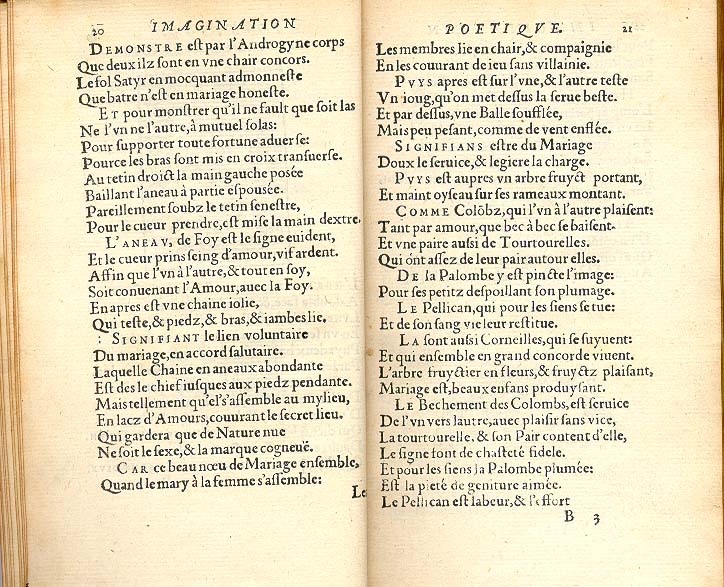 20 IMAGINATION
DEMONSTRE est par l'Androgyne corps
Que deux ilz sont en vne chair concors.
Le fol Satyr en mocquant admonneste
Que batre n'est en mariage honeste.
ET pour monstrer qu'il ne fault que soit las
Ne l'vn ne l'autre, à mutuel solas:
Pour supporter toute fortune aduerse:
Pource les bras sont mis en croix transuerse.
Au tetin droict la main gauche posée
Baillant l'aneau à partie espousée.
Pareillement soubz le tetin senestre,
Pour le cueur prendre, est mise la main dextre.
L'ANEAV, de Foy est le signe euident,
Et le cueur prins seing d'amour, vif ardent.
Affin que l'vn à l'autre, & tout en soy,
Soit conuenant l'Amour, auec la Foy.
En apres est vne chaine iolie,
Qui teste, & piedz, & bras, & iambes lie.
: SIGNIFIANT le lien voluntaire
Du mariage, en accord salutaire.
Laquelle Chaine en aneaux abondante
Est des le chief iusques aux piedz pendante.
Mais tellement qu'el's'assemble au mylieu,
En lacz d'Amours, couurant le secret lieu.
Qui gardera que de Nature nue
Ne soit le sexe, & la marque cogneuë.
CAR ce beau nœu de Mariage ensemble,
Quand le mary à la femme s'assemble:
Le
POETIQVE. 21
Les membres lie en chair, & compaignie
En les couurant de ieu sans villainie.
PVYS apres est sur l'vne, & l'autre teste
Vn ioug, qu'on met dessus la serue beste.
Et par dessus, vne Balle soufflée,
Mais peu pesant, comme de vent enflée.
SIGNIFIANS estre du Mariage
Doux le seruice, & legiere la charge.
PVYS est aupres vn arbre fruyct portant,
Et maint oyseau sur ses rameaux montant.
COMME Colōbz, qui l'vn à l'autre plaisent:
Tant par amour, que bec à bec se baisent.
Et vne paire aussi de Tourtourelles.
Qui ont assez de leur pair autour elles.
DE la Palombe y est pincte l'image:
Pour ses petitz despoillant son plumage.
LE Pellican, qui pour les siens se tue:
Et de son sang vie leur restitue.
LA sont aussi Corneilles, qui se suyuent:
Et qui ensemble en grand concorde viuent.
L'arbre fruyctier en fleurs, & fruyctz plaisant,
Mariage est, beaux enfans produysant.
LE Bechement des Colombs, est seruice
De l'vn vers lautre, auec plaisir sans vice,
La tourtourelle, & son Pair content d'elle,
Le signe font de chasteté fidele.
Et pour les siens la Palombe plumée:
Est la pieté de geniture aimée.
Le Pellican est labeur, & l'effort
B 3